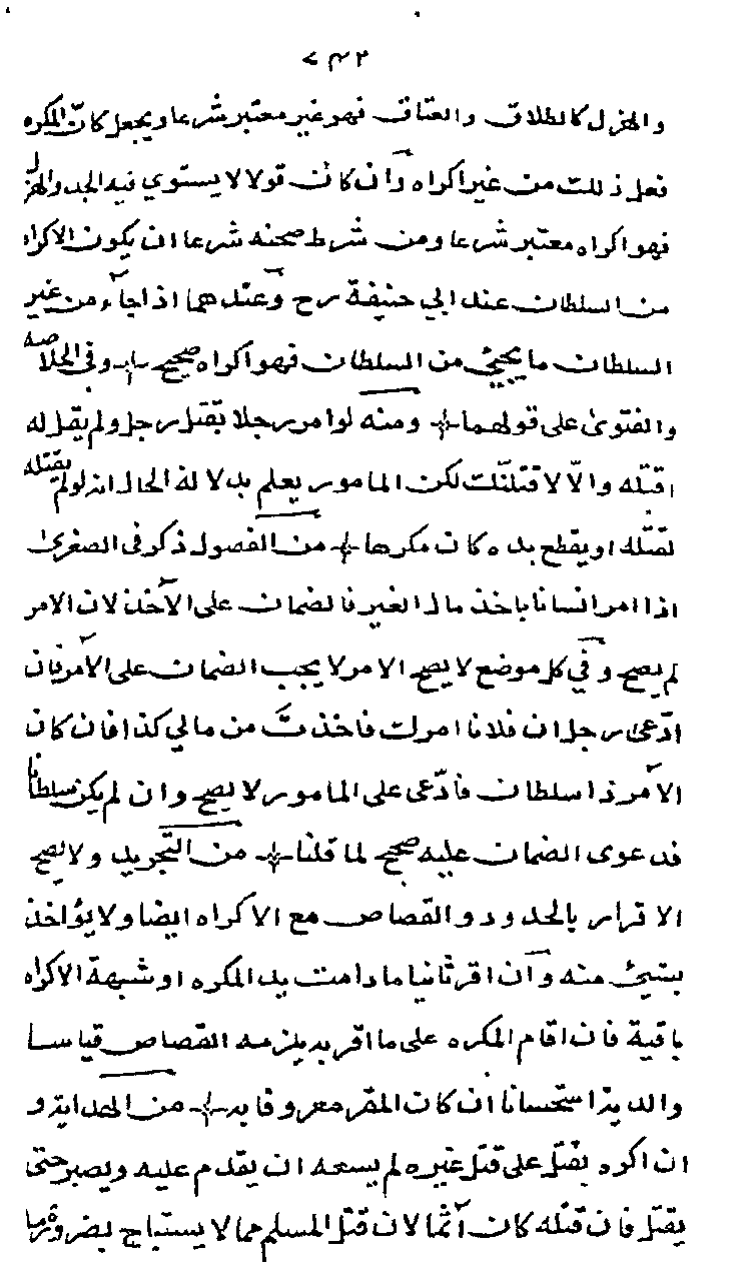 ٧٤٢
والهزل كالطلاق والعتاق فهو غير معتبر شرعا ويجعل كان المكره
فعل ذلك من غير اكراه وان كان قولا لا يستوي فيه الجد والهزل
فهو اكراه معتبر شرعا ومن شرط صحته شرعا ان يكون الاكراه
من السلطان عند ابي حنيفة رح وعندهما اذا جاء من غير
السلطان ما يجيئ من السلطان فهو اكراه صحيح وفي الخلاصه
والفتوى على قولهما ومنه لو امر رجلا بقتل رجل ولم يقل له
اقتله والا لا قتلنك لكن المامور يعلم بدلالة الحال انه لو لم يقتله
لقتله او يقطع يده كان مكرها من الفصول ذكر في الصغرى
اذا امر انسانا باخذ مال الغير فالضمان على الآخذ لان الامر
لم يصح وفي كل موضع لا يصح الامر لا يجب الضمان على الآمر فان
ادعى رجل ان فلانا امرك فاخذت من مالي كذا فان كان
الآمر ذا سلطان فادعى على المامور لا يصح وان لم يكن سلطانا
فدعوى الضمان عليه صحيح لما قلنا من التجريد ولا يصح
الاقرار بالحدود والقصاص مع الاكراه ايضا ولا يؤاخذ
بشيئ منه وان اقر ثانيا ما دامت يد المكره او شبهة الاكراه
باقية فان اقام المكره على ما اقر به يلزمه القصاص قياسا
والدية استحسانا ان كان المقر معروفا به من الهداية و
ان اكره بقتل على قتل غيره لم يسعه ان يقدم عليه ويصبر حتى
يقتل فان قتله كان آثما لان قتل المسلم مما لا يستباح بضرورة ما